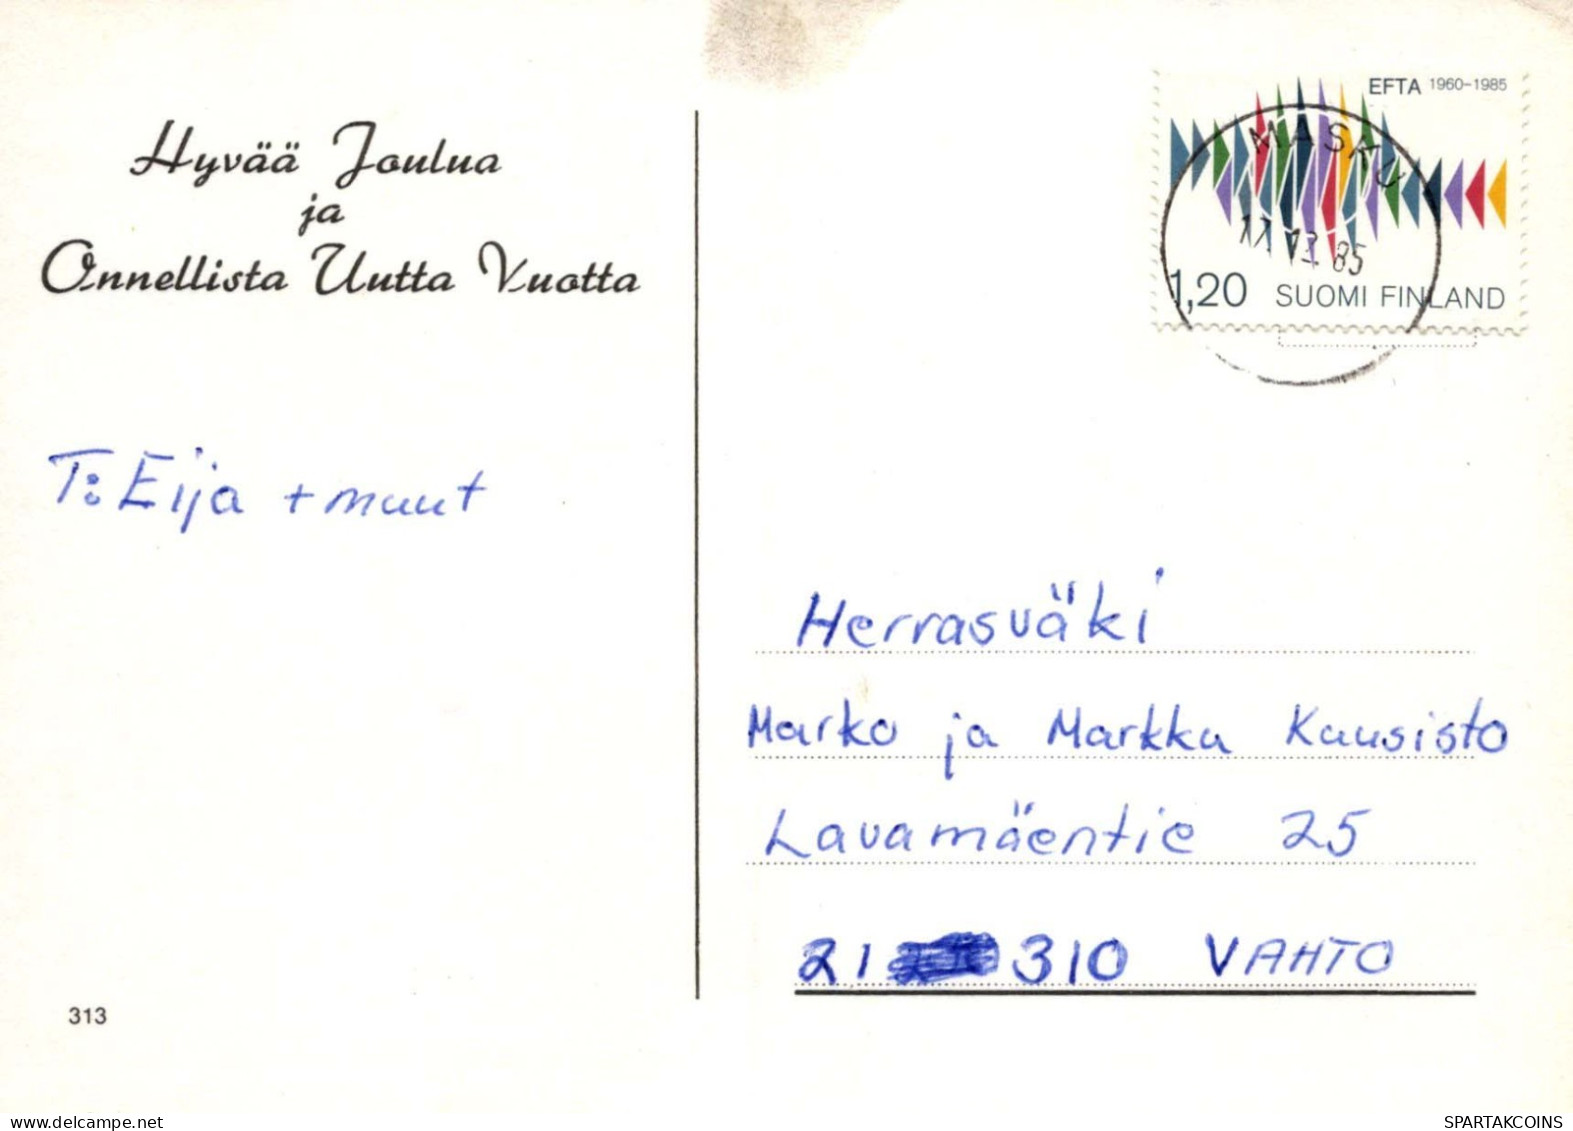 Hyvää Joulua
ja
Onnellista Uutta Vuotta
T: Eija + muut
313
EFTA 1960-1985
MASKU
85
1,20 SUOMI FINLAND
Herrasväki
Marko ja Markku Kausisto
Lavamäentie 25
21 310 VAHTO
delcampe.net
SPARTAKCOINS